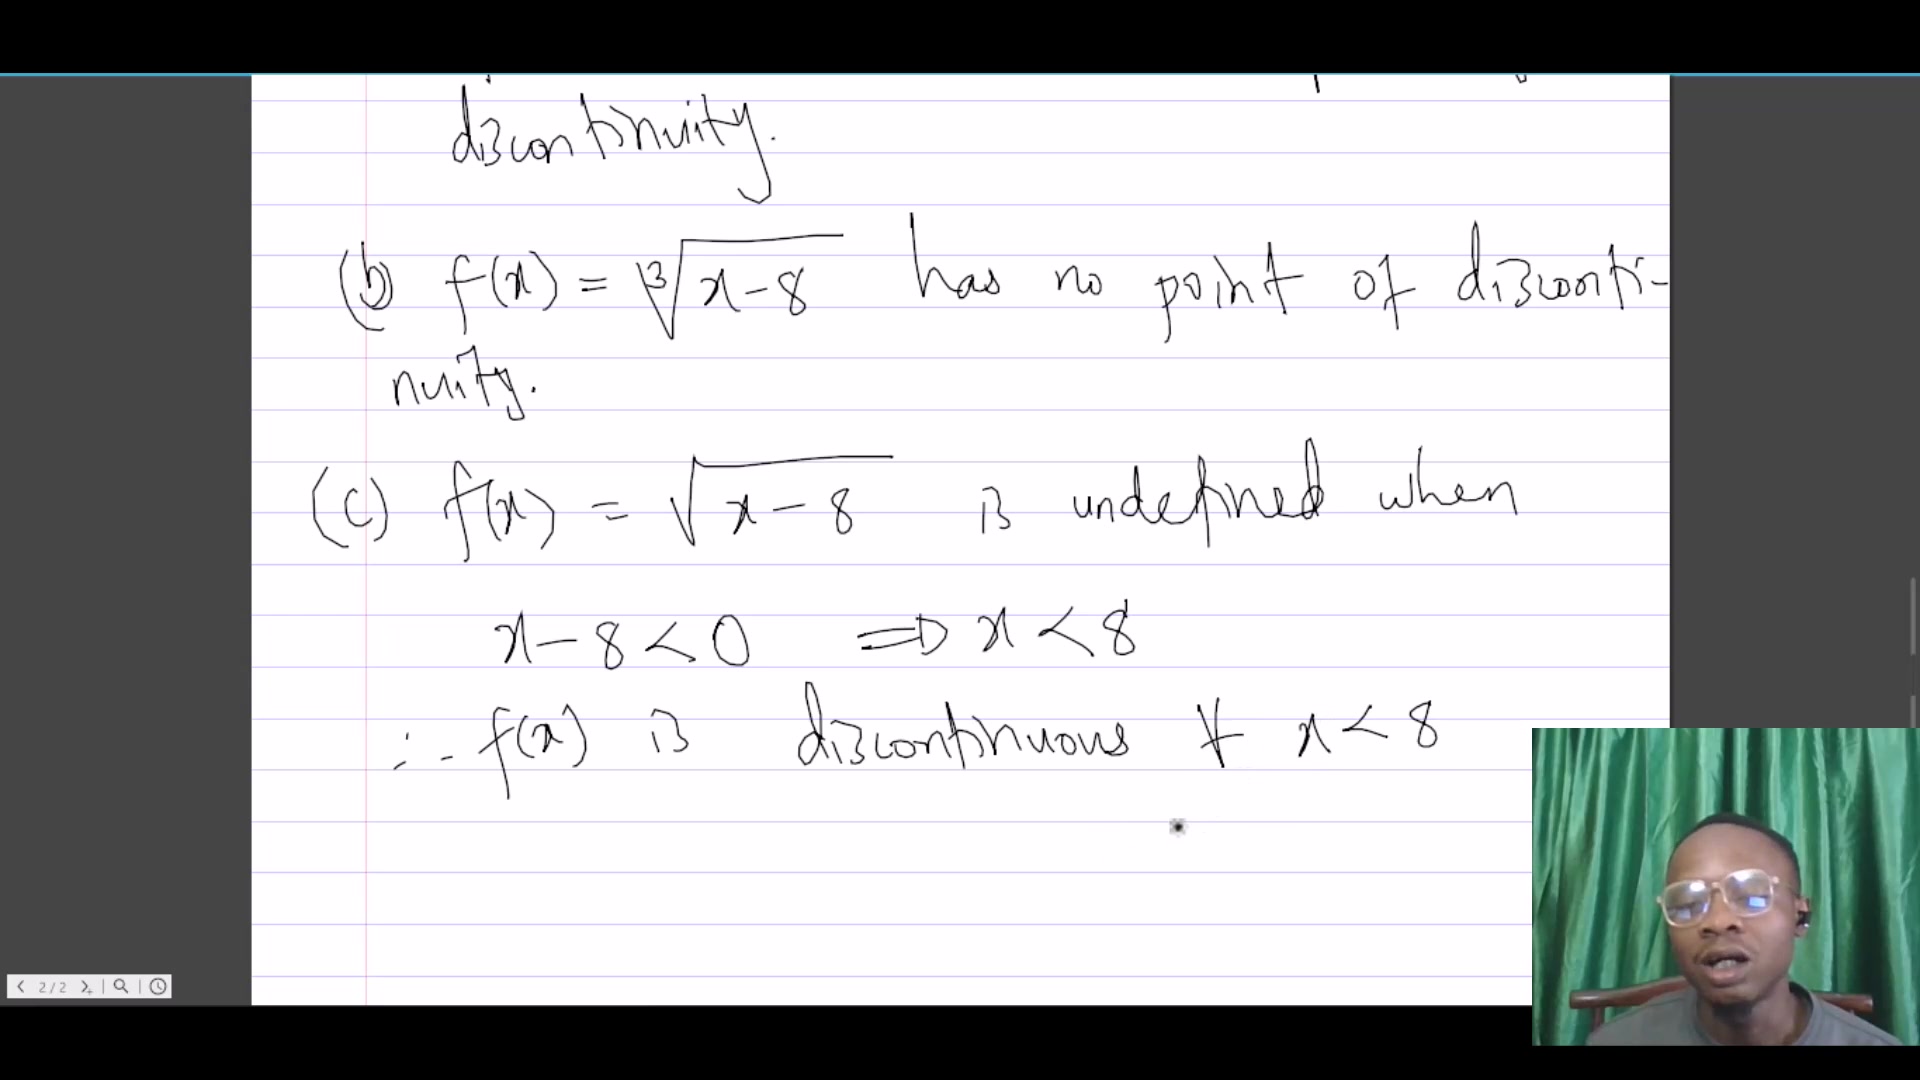 discontinuity.
(b) f(x) = ∛x-8 has no point of disconti-
nuity.
(c) f(x) = √x-8 is undefined when
x-8<0 ⇒ x<8
∴ f(x) is discontinuous ∀ x<8
2/2